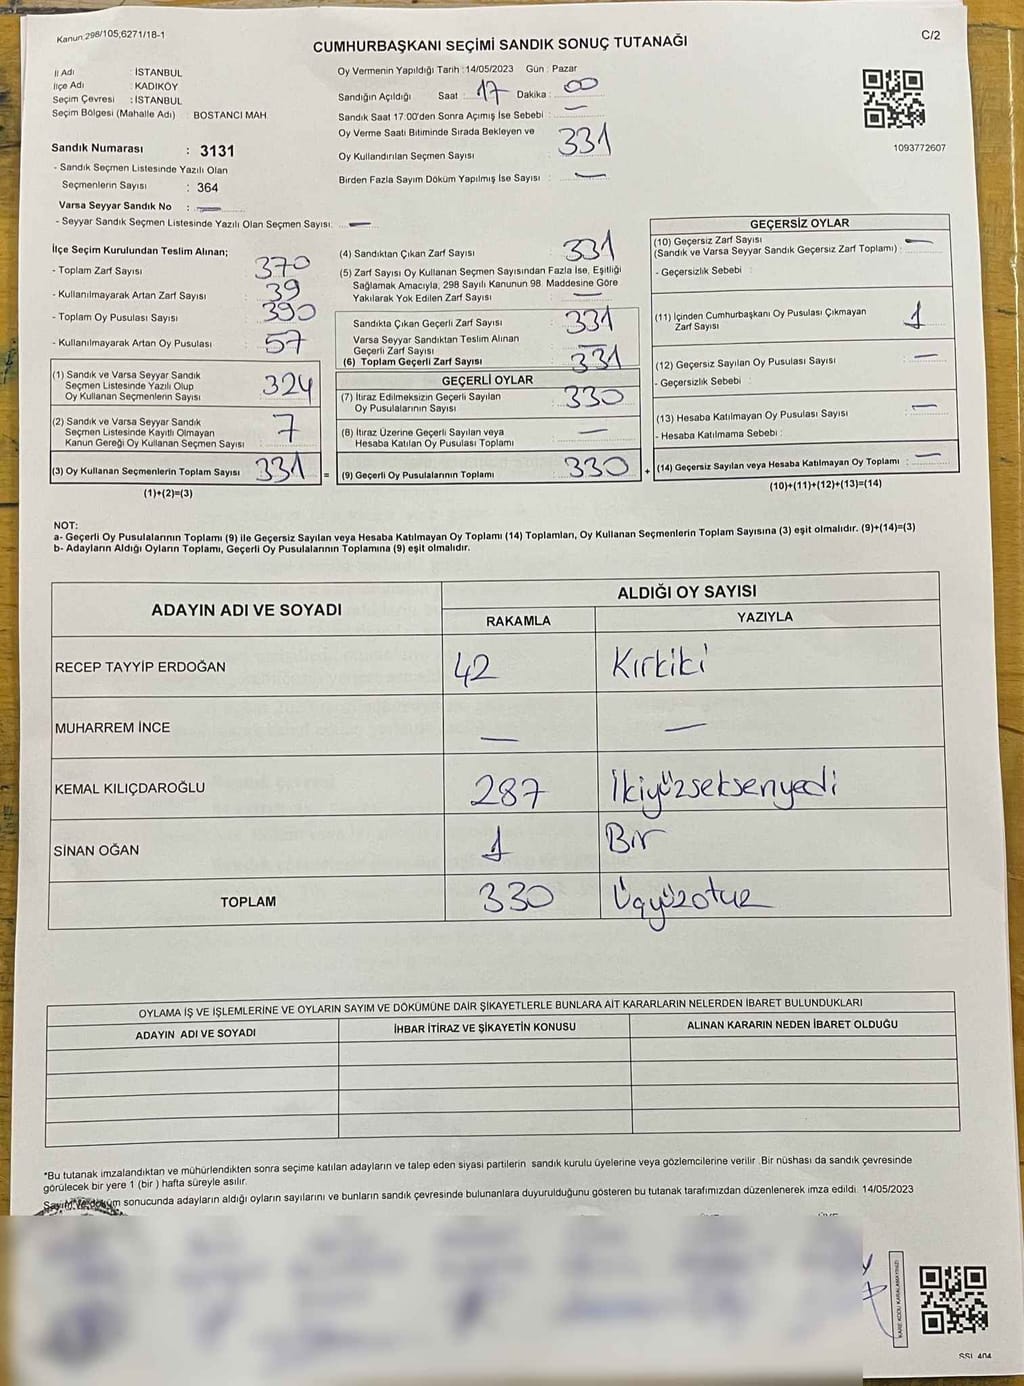 Kanun 298/105,6271/18-1
C/2
CUMHURBAŞKANI SEÇİMİ SANDIK SONUÇ TUTANAĞI
İl Adı : İSTANBUL
İlçe Adı : KADIKÖY
Seçim Çevresi : İSTANBUL
Seçim Bölgesi (Mahalle Adı) : BOSTANCI MAH
Sandık Numarası : 3131
- Sandık Seçmen Listesinde Yazılı Olan
Seçmenlerin Sayısı : 364
Varsa Seyyar Sandık No : —
- Seyyar Sandık Seçmen Listesinde Yazılı Olan Seçmen Sayısı: —
Oy Vermenin Yapıldığı Tarih :14/05/2023 Gün : Pazar
Sandığın Açıldığı Saat : 17 Dakika : 00
Sandık Saat 17:00'den Sonra Açımış İse Sebebi : —
Oy Verme Saati Bitiminde Sırada Bekleyen ve
Oy Kullandırılan Seçmen Sayısı : 331
Birden Fazla Sayım Döküm Yapılmış İse Sayısı : —
1093772607
İlçe Seçim Kurulundan Teslim Alınan;
- Toplam Zarf Sayısı : 370
- Kullanılmayarak Artan Zarf Sayısı : 39
- Toplam Oy Pusulası Sayısı : 390
- Kullanılmayarak Artan Oy Pusulası : 57
(1) Sandık ve Varsa Seyyar Sandık
Seçmen Listesinde Yazılı Olup
Oy Kullanan Seçmenlerin Sayısı : 324
(2) Sandık ve Varsa Seyyar Sandık
Seçmen Listesinde Kayıtlı Olmayan
Kanun Gereği Oy Kullanan Seçmen Sayısı : 7
(3) Oy Kullanan Seçmenlerin Toplam Sayısı : 331
(1)+(2)=(3)
=
(4) Sandıktan Çıkan Zarf Sayısı : 331
(5) Zarf Sayısı Oy Kullanan Seçmen Sayısından Fazla İse, Eşitliği
Sağlamak Amacıyla, 298 Sayılı Kanunun 98. Maddesine Göre
Yakılarak Yok Edilen Zarf Sayısı : —
Sandıkta Çıkan Geçerli Zarf Sayısı : 331
Varsa Seyyar Sandıktan Teslim Alınan
Geçerli Zarf Sayısı : —
(6) Toplam Geçerli Zarf Sayısı : 331
GEÇERLİ OYLAR
(7) İtiraz Edilmeksizin Geçerli Sayılan
Oy Pusulalarının Sayısı : 330
(8) İtiraz Üzerine Geçerli Sayılan veya
Hesaba Katılan Oy Pusulası Toplamı : —
(9) Geçerli Oy Pusulalarının Toplamı : 330
+
GEÇERSİZ OYLAR
(10) Geçersiz Zarf Sayısı
(Sandık ve Varsa Seyyar Sandık Geçersiz Zarf Toplamı) : —
- Geçersizlik Sebebi :
(11) İçinden Cumhurbaşkanı Oy Pusulası Çıkmayan
Zarf Sayısı : 1
(12) Geçersiz Sayılan Oy Pusulası Sayısı : —
- Geçersizlik Sebebi :
(13) Hesaba Katılmayan Oy Pusulası Sayısı : —
- Hesaba Katılmama Sebebi :
(14) Geçersiz Sayılan veya Hesaba Katılmayan Oy Toplamı : —
(10)+(11)+(12)+(13)=(14)
NOT:
a- Geçerli Oy Pusulalarının Toplamı (9) ile Geçersiz Sayılan veya Hesaba Katılmayan Oy Toplamı (14) Toplamları, Oy Kullanan Seçmenlerin Toplam Sayısına (3) eşit olmalıdır. (9)+(14)=(3)
b- Adayların Aldığı Oyların Toplamı, Geçerli Oy Pusulalarının Toplamına (9) eşit olmalıdır.
ADAYIN ADI VE SOYADI
ALDIĞI OY SAYISI
RAKAMLA YAZIYLA
RECEP TAYYİP ERDOĞAN 42 Kırkiki
MUHARREM İNCE — —
KEMAL KILIÇDAROĞLU 287 İkiyüzseksenyedi
SİNAN OĞAN 1 Bir
TOPLAM 330 Üçyüzotuz
OYLAMA İŞ VE İŞLEMLERİNE VE OYLARIN SAYIM VE DÖKÜMÜNE DAİR ŞİKAYETLERLE BUNLARA AİT KARARLARIN NELERDEN İBARET BULUNDUKLARI
ADAYIN ADI VE SOYADI İHBAR İTİRAZ VE ŞİKAYETİN KONUSU ALINAN KARARIN NEDEN İBARET OLDUĞU
*Bu tutanak imzalandıktan ve mühürlendikten sonra seçime katılan adayların ve talep eden siyasi partilerin sandık kurulu üyelerine veya gözlemcilerine verilir. Bir nüshası da sandık çevresinde
görülecek bir yere 1 (bir) hafta süreyle asılır.
Sayım ve döküm sonucunda adayların aldığı oyların sayılarını ve bunların sandık çevresinde bulunanlara duyurulduğunu gösteren bu tutanak tarafımızdan düzenlenerek imza edildi. 14/05/2023
KARE KODU KARALAMAYINIZ!